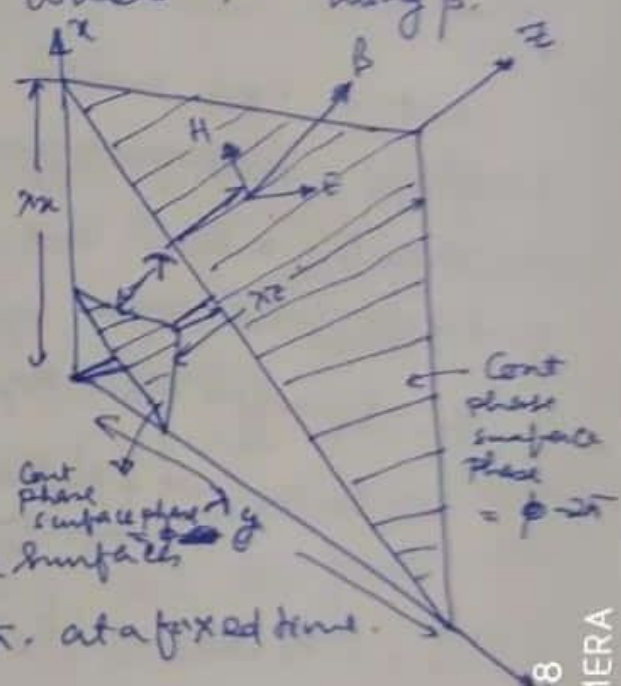 using β.
x
β
z
H
E
λx
λ
λz
Cont
phase
surface
phase
= ϕ-2π
Cont
phase
surface phase
= ϕ
y
Surfaces
at a fixed time.
8
MERA